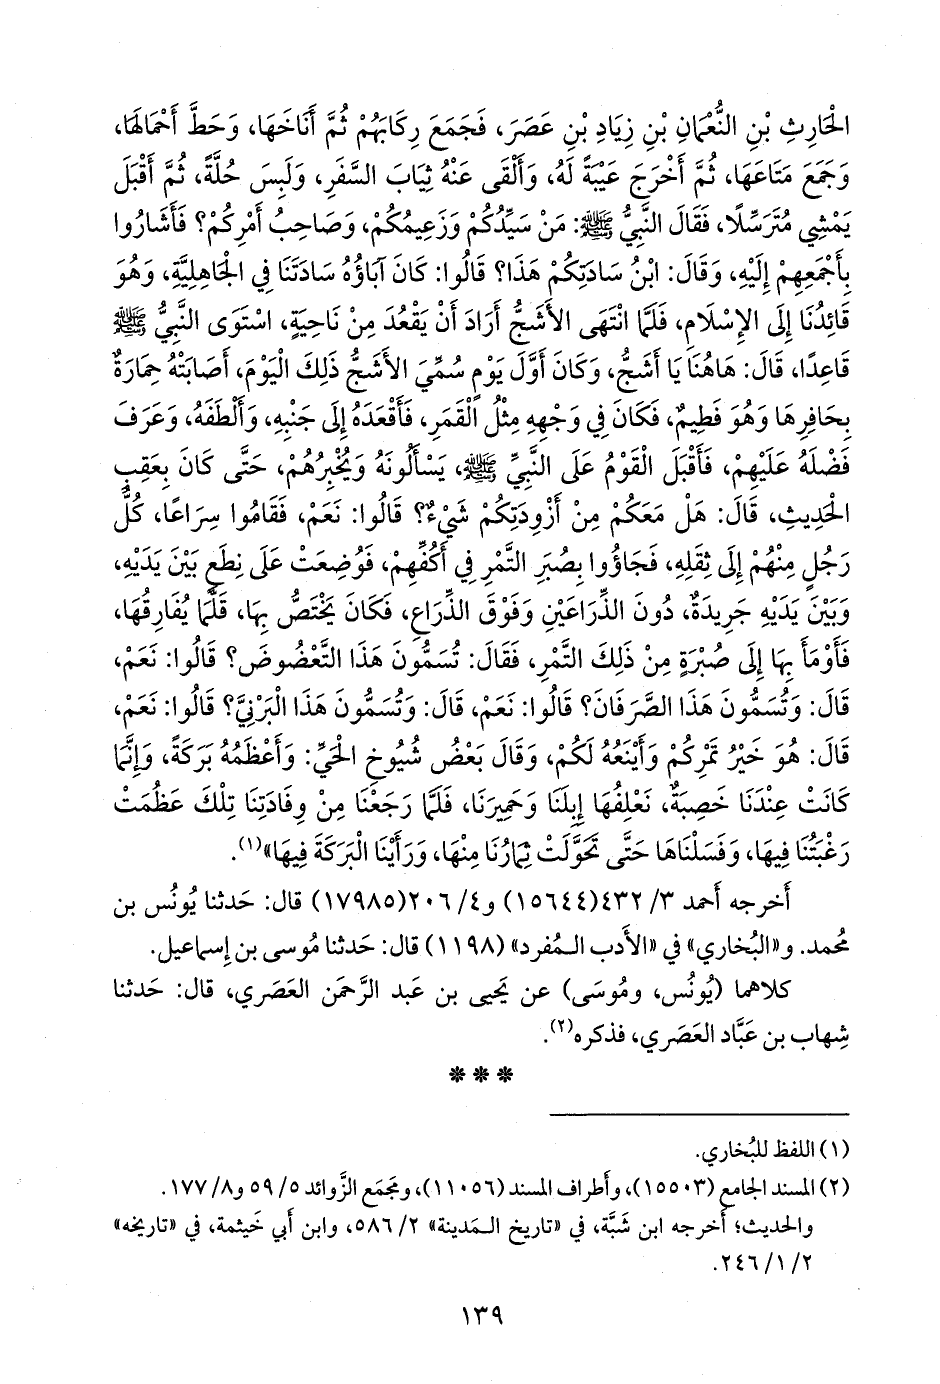 الْحَارِثِ بْنِ النُّعْمَانِ بْنِ زِيَادِ بْنِ عَصَرَ، فَجَمَعَ رِكَابَهُمْ ثُمَّ أَنَاخَهَا، وَحَطَّ أَحْمَالَهَا،
وَجَمَعَ مَتَاعَهَا، ثُمَّ أَخْرَجَ عَيْبَةً لَهُ، وَأَلْقَى عَنْهُ ثِيَابَ السَّفَرِ، وَلَبِسَ حُلَّةً، ثُمَّ أَقْبَلَ
يَمْشِي مُتَرَسِّلًا، فَقَالَ النَّبِيُّ ﷺ: مَنْ سَيِّدُكُمْ وَزَعِيمُكُمْ، وَصَاحِبُ أَمْرِكُمْ؟ فَأَشَارُوا
بِأَجْمَعِهِمْ إِلَيْهِ، وَقَالَ: ابْنُ سَادَتِكُمْ هَذَا؟ قَالُوا: كَانَ آبَاؤُهُ سَادَتَنَا فِي الْجَاهِلِيَّةِ، وَهُوَ
قَائِدُنَا إِلَى الإِسْلَامِ، فَلَمَّا انْتَهَى الأَشَجُّ أَرَادَ أَنْ يَقْعُدَ مِنْ نَاحِيَةٍ، اسْتَوَى النَّبِيُّ ﷺ
قَاعِدًا، قَالَ: هَاهُنَا يَا أَشَجُّ، وَكَانَ أَوَّلَ يَوْمٍ سُمِّيَ الأَشَجُّ ذَلِكَ الْيَوْمَ، أَصَابَتْهُ حِمَارَةٌ
بِحَافِرِهَا وَهُوَ فَطِيمٌ، فَكَانَ فِي وَجْهِهِ مِثْلُ الْقَمَرِ، فَأَقْعَدَهُ إِلَى جَنْبِهِ، وَأَلْطَفَهُ، وَعَرَفَ
فَضْلَهُ عَلَيْهِمْ، فَأَقْبَلَ الْقَوْمُ عَلَى النَّبِيِّ ﷺ، يَسْأَلُونَهُ وَيُخْبِرُهُمْ، حَتَّى كَانَ بِعَقِبِ
الْحَدِيثِ، قَالَ: هَلْ مَعَكُمْ مِنْ أَزْوِدَتِكُمْ شَيْءٌ؟ قَالُوا: نَعَمْ، فَقَامُوا سِرَاعًا، كُلُّ
رَجُلٍ مِنْهُمْ إِلَى ثِقَلِهِ، فَجَاؤُوا بِصُبَرِ التَّمْرِ فِي أَكُفِّهِمْ، فَوُضِعَتْ عَلَى نِطَعٍ بَيْنَ يَدَيْهِ،
وَبَيْنَ يَدَيْهِ جَرِيدَةٌ، دُونَ الذِّرَاعَيْنِ وَفَوْقَ الذِّرَاعِ، فَكَانَ يَخْتَصُّ بِهَا، قَلَّمَا يُفَارِقُهَا،
فَأَوْمَأَ بِهَا إِلَى صُبْرَةٍ مِنْ ذَلِكَ التَّمْرِ، فَقَالَ: تُسَمُّونَ هَذَا التَّعْضُوضَ؟ قَالُوا: نَعَمْ،
قَالَ: وَتُسَمُّونَ هَذَا الصَّرَفَانَ؟ قَالُوا: نَعَمْ، قَالَ: وَتُسَمُّونَ هَذَا الْبَرْنِيَّ؟ قَالُوا: نَعَمْ،
قَالَ: هُوَ خَيْرُ تَمْرِكُمْ وَأَيْنَعُهُ لَكُمْ، وَقَالَ بَعْضُ شُيُوخِ الْحَيِّ: وَأَعْظَمُهُ بَرَكَةً، وَإِنَّمَا
كَانَتْ عِنْدَنَا خَصِبَةٌ، نَعْلِفُهَا إِبِلَنَا وَحَمِيرَنَا، فَلَمَّا رَجَعْنَا مِنْ وِفَادَتِنَا تِلْكَ عَظُمَتْ
رَغْبَتُنَا فِيهَا، وَفَسَلْنَاهَا حَتَّى تَحَوَّلَتْ ثِمَارُنَا مِنْهَا، وَرَأَيْنَا الْبَرَكَةَ فِيهَا»(١).
أَخرجه أَحمد ٣/ ٤٣٢(١٥٦٤٤) و٤/ ٢٠٦(١٧٩٨٥) قال: حَدثنا يُونُس بن
مُحمد. و«البُخاري» في «الأَدب المُفرد» (١١٩٨) قال: حَدثنا مُوسى بن إِسماعيل.
كلاهما (يُونُس، ومُوسَى) عن يَحيى بن عَبد الرَّحمَن العَصَري، قال: حَدثنا
شِهاب بن عَبَّاد العَصَري، فذكره(٢).
* * *
(١) اللفظ للبُخاري.
(٢) المسند الجامع (١٥٥٠٣)، وأَطراف المسند (١١٠٥٦)، ومَجمَع الزَّوائد ٥/ ٥٩ و٨/ ١٧٧.
والحديث؛ أَخرجه ابن شَبَّة، في «تاريخ المَدينة» ٢/ ٥٨٦، وابن أَبي خَيثمة، في «تاريخه»
٢/ ١/ ٢٤٦.
١٣٩